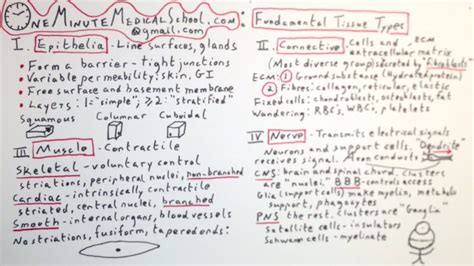 OneMinuteMedicalSchool.com
@gmail.com
Fundamental Tissue Types
I. Epithelia - Line surfaces, glands
• Form a barrier - tight junctions
• Variable permeability: skin, GI
• Free surface and basement membrane
• Layers: 1="simple"; ≥2: "stratified"
Squamous Columnar Cuboidal
III Muscle - Contractile
Skeletal - voluntary control
striations, peripheral nuclei, non-branched
Cardiac - intrinsically contractile
striated, central nuclei, branched
Smooth - internal organs, blood vessels
No striations, fusiform, tapered ends:
II. Connective - Cells and ECM
extracellular matrix
(Most diverse group) secreted by "fibroblasts"
ECM: ① Ground substance (Hydrated protein)
② Fibres: collagen, reticular, elastic
Fixed cells: chondroblasts, osteoblasts, fat
Wandering: RBC's, WBC's, platelets
IV Nerve - Transmits electrical signals
Neurons and support cells. "Dendrite"
receives signal. Axon conducts
CNS: brain and spinal chord. Clusters
are "nuclei". BBB - controls access
Glia (support cells) make myelin, metabolic
support, phagocytes
PNS the rest. Clusters are "Ganglia"
Satellite cells - insulators
Schwann cells - myelinate